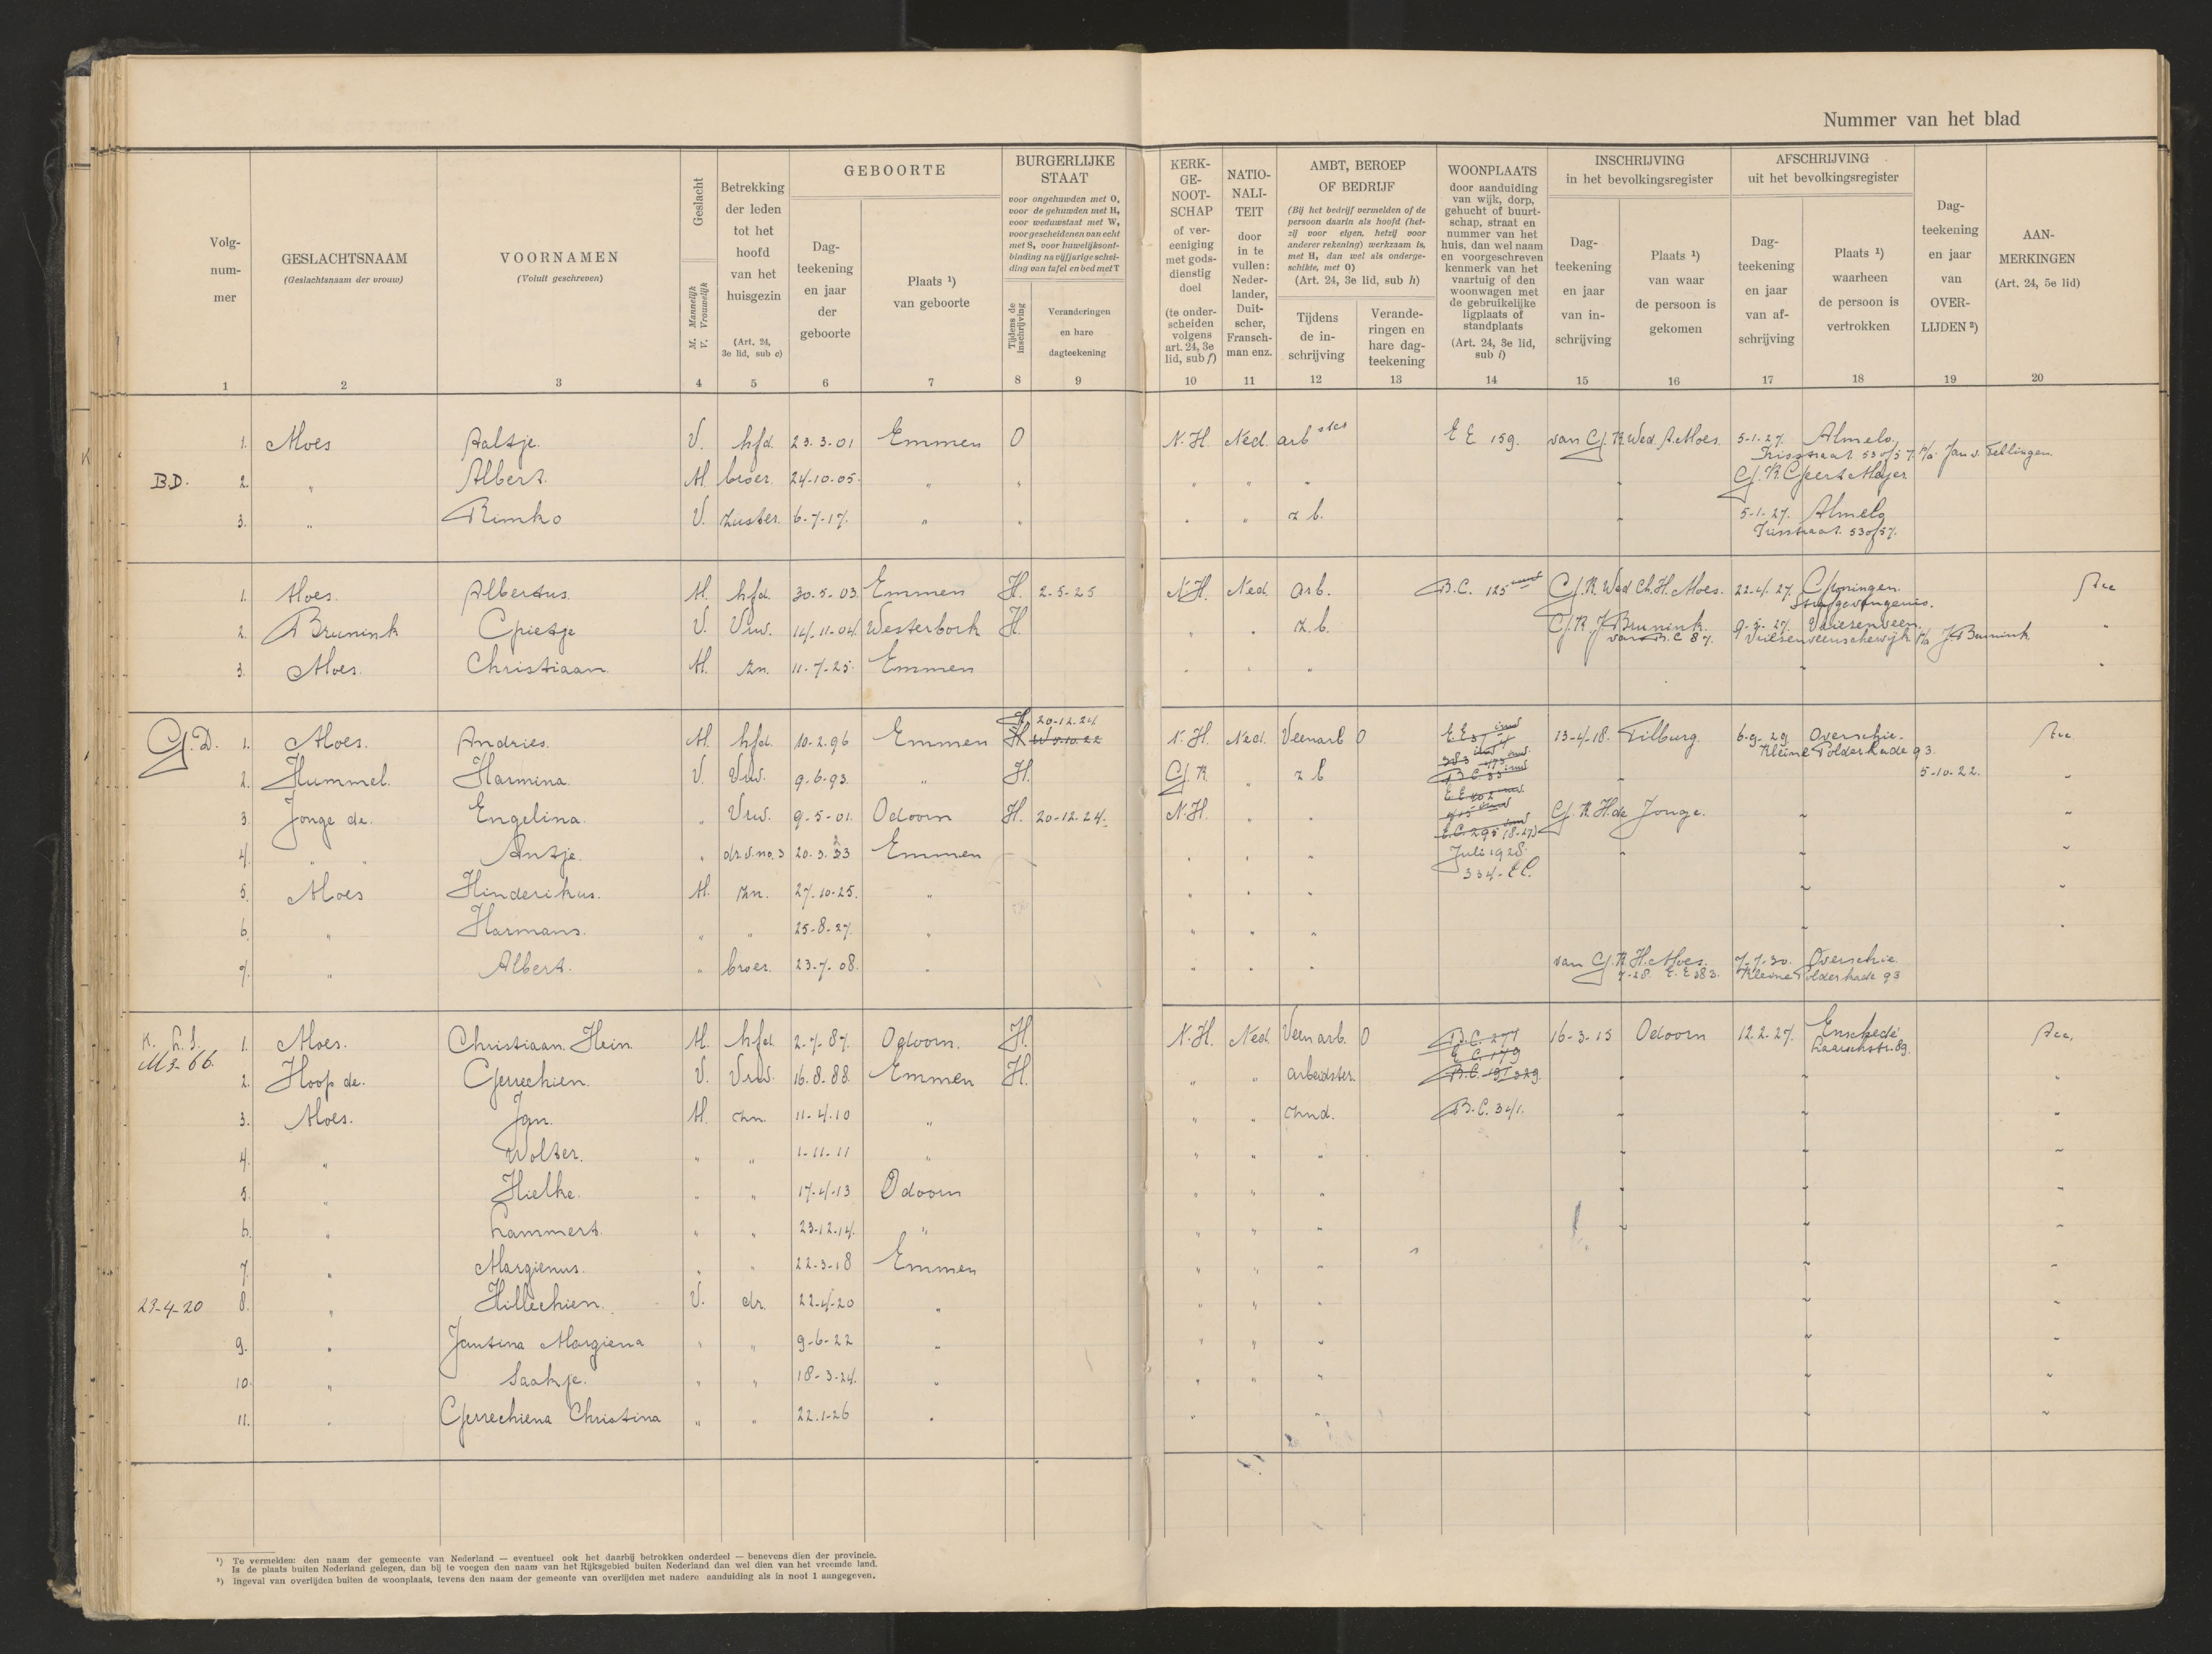 Nummer van het blad
Volg-
num-
mer
GESLACHTSNAAM
(Geslachtsnaam der vrouw)
VOORNAMEN
(Voluit geschreven)
Geslacht
M. Mannelijk
V. Vrouwelijk
Betrekking
der leden
tot het
hoofd
van het
huisgezin
(Art. 24,
3e lid, sub c)
GEBOORTE
Dag-
teekening
en jaar
der
geboorte
Plaats ¹)
van geboorte
BURGERLIJKE
STAAT
voor ongehuwden met O,
voor de gehuwden met H,
voor weduwstaat met W,
voor gescheidenen van echt
met S, voor huwelijksont-
binding na vijfjarige schei-
ding van tafel en bed met T
Tijdens de
inschrijving
Veranderingen
en hare
dagteekening
KERK-
GE-
NOOT-
SCHAP
of ver-
eeniging
met gods-
dienstig
doel
(te onder-
scheiden
volgens
art. 24, 3e
lid, sub f)
NATIO-
NALI-
TEIT
door
in te
vullen:
Neder-
lander,
Duit-
scher,
Fransch-
man enz.
AMBT, BEROEP
OF BEDRIJF
(Bij het bedrijf vermelden of de
persoon daarin als hoofd (het-
zij voor eigen, hetzij voor
anderer rekening) werkzaam is,
met H, dan wel als onderge-
schikte, met O)
(Art. 24, 3e lid, sub h)
Tijdens
de in-
schrijving
Verande-
ringen en
hare dag-
teekening
WOONPLAATS
door aanduiding
van wijk, dorp,
gehucht of buurt-
schap, straat en
nummer van het
huis, dan wel naam
en voorgeschreven
kenmerk van het
vaartuig of den
woonwagen met
de gebruikelijke
ligplaats of
standplaats
(Art. 24, 3e lid,
sub i)
INSCHRIJVING
in het bevolkingsregister
Dag-
teekening
en jaar
van in-
schrijving
Plaats ¹)
van waar
de persoon is
gekomen
AFSCHRIJVING
uit het bevolkingsregister
Dag-
teekening
en jaar
van af-
schrijving
Plaats ¹)
waarheen
de persoon is
vertrokken
Dag-
teekening
en jaar
van
OVER-
LIJDEN ²)
AAN-
MERKINGEN
(Art. 24, 5e lid)
1 2 3 4 5 6 7 8 9 10 11 12 13 14 15 16 17 18 19 20
1. Moes Aaltje. V. hfd. 23-3-01 Emmen O N.H. Ned. arb ster E E 159. van G.K. Wed A. Moes. 5-1-27. Almelo.
530/57. p/a Jan v. Tellingen.
B.D. 2. " Albert. M. broer. 24-10-05. " " " " " " G.K. Geert Meijer
3. " Rimko V. zuster. 6-7-17. " " " " z b. " 5-1-27. Almelo
530/57.
1. Moes. Albertus. M. hfd. 30-5-03. Emmen H. 2-5-25 N.H. Ned. arb. B.C. 125 G.K. Wed Ch. H. Moes. 22-4-27. Groningen.
Strafgevangenis.
2. Brunink Grietje V. Vrw. 14-11-04 Westerbork H. " " z.b. G.K. J Brunink. 9-5-27. Vriezenveen.
van B.C 87. Vriezenveenschewijk p/a J Brunink
3. Moes. Christiaan. M. zn. 11-7-25. Emmen " " "
H. 20-12-24
G.D. 1. Moes. Andries. M. hfd. 10-2-96 Emmen H W 5.10.22 N.H. Ned. Veenarb O E E 13-4-18. Tilburg. 6-9-29 Overschie.
Kleine Polderkade 93.
2. Hummel. Harmina. V. Vrw. 9-6-93. " H. G K " z b B.C. 33 " 5-10-22. "
3. Jonge de. Engelina. " Vrw. 9-5-01. Odoorn H. 20-12-24. N.H. " " E.C. 295 (8-27) G.K. H. de Jonge. "
4. " " Antje. " dr. v. no. 3 20-3-23 Emmen " " " Juli 1928.
334-EC.
5. Moes Hinderikus. M. zn. 27-10-25. " " " "
6. " Harmans. " " 25-8-27. " " " "
7. " Albert. " broer. 23-7-08. " " " " van G.K H. Moes. 7-7-30. Overschie.
7-28. E.E 383. Kleine Polderkade 93
K. L.S. 1. Moes. Christiaan Hein. M. hfd. 2-7-87. Odoorn. H. N.H. Ned. Veenarb. O B.C. 277 16-3-15 Odoorn 12-2-27. Enschedé
M3-66. E C. 179 89.
2. Hoop de. Gerrechien. V. Vrw. 16-8-88. Emmen H. " " arbeidster. B.C. 191 329. " "
3. Moes. Jan. M. zn. 11-4-10 " " " znd. B.C. 341. " "
4. " Wolter. " " 1-11-11 " " " " " "
5. " Hielke. " " 17-4-13 Odoorn " " " " "
6. " Lammert. " " 23-12-14. " " " " " "
7. " Margienus. " " 22-3-18 Emmen " " " "
23-4-20 8. " Hillechien. V. dr. 22-4-20 " " " " "
9. " Jantina Margiena " " 9-6-22 " " " " "
10. " Saakje. " " 18-3-24. " " " " "
11. " Gerrechiena Christina " " 22-1-26 " " " "
¹) Te vermelden: den naam der gemeente van Nederland — eventueel ook het daarbij betrokken onderdeel — benevens dien der provincie.
Is de plaats buiten Nederland gelegen, dan bij te voegen den naam van het Rijksgebied buiten Nederland dan wel dien van het vreemde land.
²) Ingeval van overlijden buiten de woonplaats, tevens den naam der gemeente van overlijden met nadere aanduiding als in noot 1 aangegeven.